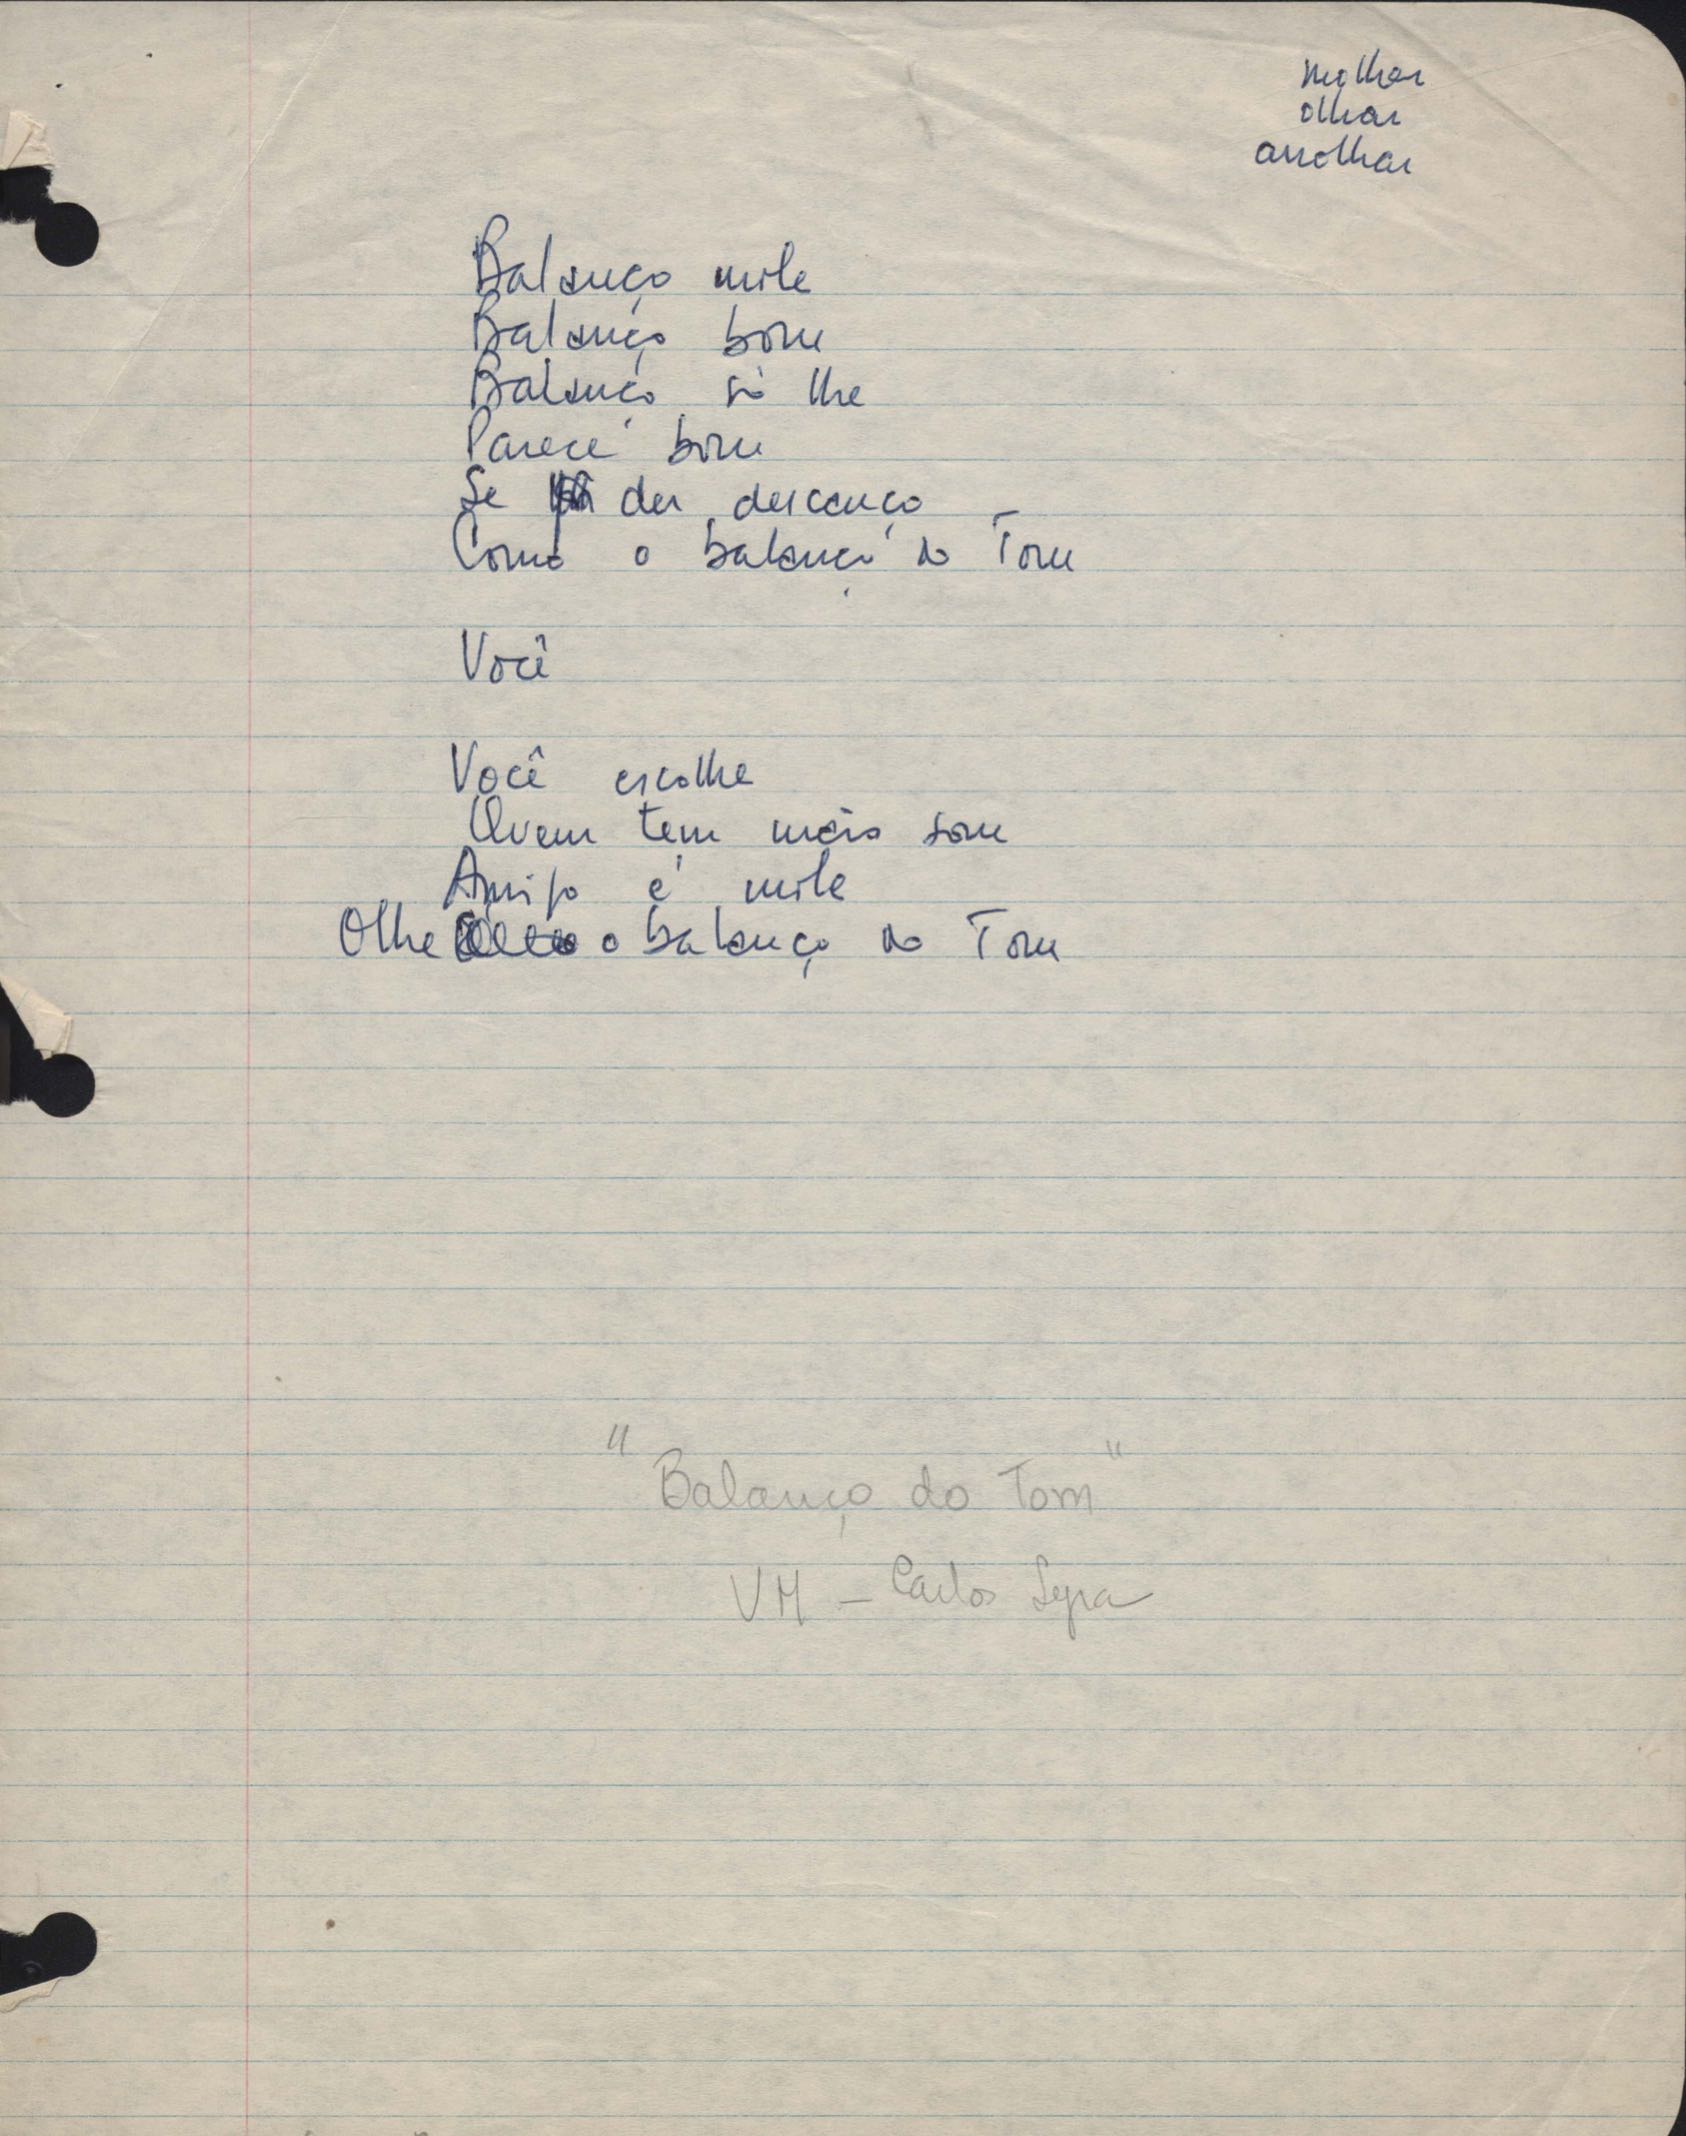 molhar
olhar
arrolhar
Balanço mole
Balanço bom
Balanço só lhe
Parece bom
Se der descanço
Como o balanço do Tom
Você
Você escolhe
Quem tem mais som
Amigo é mole
Olhe o balanço do Tom
"Balanço do Tom"
VM - Carlos Lyra